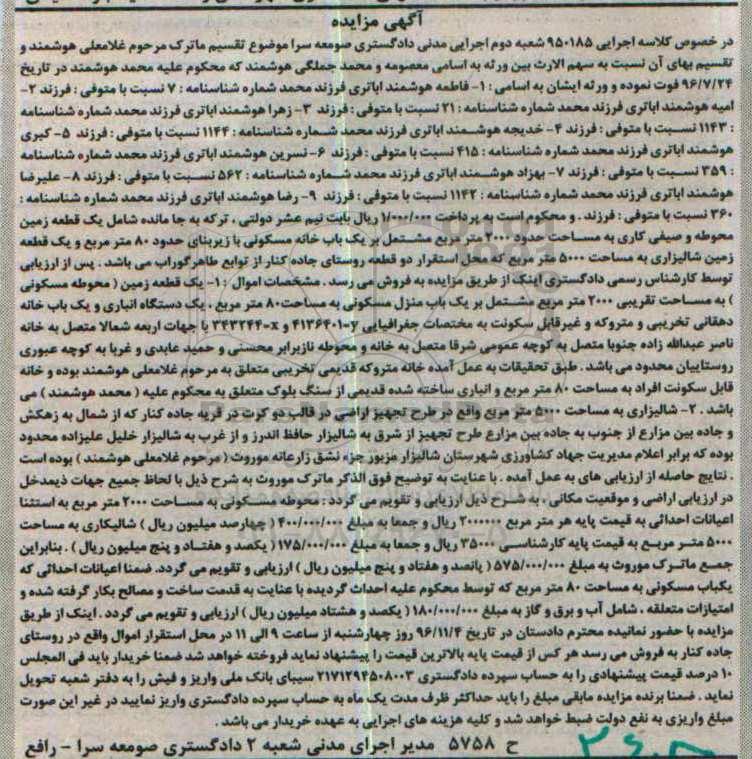 آگهی مزایده
در خصوص کلاسه اجرایی ۹۵۰۱۸۵ شعبه دوم اجرایی مدنی دادگستری صومعه سرا موضوع تقسیم ماترک مرحوم غلامعلی هوشمند و
تقسیم بهای آن نسبت به سهم الارث بین ورثه به اسامی معصومه و محمد جملگی هوشمند که محکوم علیه محمد هوشمند در تاریخ
۹۶/۷/۲۴ فوت نموده و ورثه ایشان به اسامی : ۱- فاطمه هوشمند اباتری فرزند محمد شماره شناسنامه : ۷ نسبت با متوفی : فرزند ۲-
امیه هوشمند اباتری فرزند محمد شماره شناسنامه : ۲۱ نسبت با متوفی : فرزند ۳- زهرا هوشمند اباتری فرزند محمد شماره شناسنامه
: ۱۱۴۳ نسبت با متوفی : فرزند ۴- خدیجه هوشمند اباتری فرزند محمد شماره شناسنامه : ۱۱۴۴ نسبت با متوفی : فرزند ۵- کبری
هوشمند اباتری فرزند محمد شماره شناسنامه : ۴۱۵ نسبت با متوفی : فرزند ۶- نسرین هوشمند اباتری فرزند محمد شماره شناسنامه
: ۳۵۹ نسبت با متوفی : فرزند ۷- بهزاد هوشمند اباتری فرزند محمد شماره شناسنامه : ۵۶۲ نسبت با متوفی : فرزند ۸- علیرضا
هوشمند اباتری فرزند محمد شماره شناسنامه : ۱۱۴۲ نسبت با متوفی : فرزند ۹- رضا هوشمند اباتری فرزند محمد شماره شناسنامه :
۳۶۰ نسبت با متوفی : فرزند . و محکوم است به پرداخت ۱/۰۰۰/۰۰۰ ریال بابت نیم عشر دولتی ، ترکه به جا مانده شامل یک قطعه زمین
محوطه و صیفی کاری به مساحت حدود ۲۰۰۰ متر مربع مشتمل بر یک باب خانه مسکونی با زیربنای حدود ۸۰ متر مربع و یک قطعه
زمین شالیزاری به مساحت ۵۰۰۰ متر مربع که محل استقرار دو قطعه روستای جاده کنار از توابع طاهرگوراب می باشد . پس از ارزیابی
توسط کارشناس رسمی دادگستری اینک از طریق مزایده به فروش می رسد . مشخصات اموال : ۱- یک قطعه زمین ( محوطه مسکونی
) به مساحت تقریبی ۲۰۰۰ متر مربع مشتمل بر یک باب منزل مسکونی به مساحت ۸۰ متر مربع ، یک دستگاه انباری و یک باب خانه
دهقانی تخریبی و متروکه و غیرقابل سکونت به مختصات جغرافیایی y-۴۱۳۶۴۰۱ و x-۳۴۳۲۴۴ با جهات اربعه شمالا متصل به خانه
ناصر عبدالله زاده جنوبا متصل به کوچه عمومی شرقا متصل به خانه و محوطه نازبرابر محسنی و حمید عابدی و غربا به کوچه عبوری
روستاییان محدود می باشد . طبق تحقیقات به عمل آمده خانه متروکه قدیمی تخریبی متعلق به مرحوم غلامعلی هوشمند بوده و خانه
قابل سکونت افراد به مساحت ۸۰ متر مربع و انباری ساخته شده قدیمی از سنگ بلوک متعلق به محکوم علیه ( محمد هوشمند ) می
باشد . ۲- شالیزاری به مساحت ۵۰۰۰ متر مربع واقع در طرح تجهیز اراضی در قالب دو کرت در قریه جاده کنار که از شمال به زهکش
و جاده بین مزارع از جنوب به جاده بین مزارع طرح تجهیز از شرق به شالیزار حافظ اندرز و از غرب به شالیزار خلیل علیزاده محدود
بوده که برابر اعلام مدیریت جهاد کشاورزی شهرستان شالیزار مزبور جزء نشق زارعانه موروث ( مرحوم غلامعلی هوشمند ) بوده است
. نتایج حاصله از ارزیابی های به عمل آمده . با عنایت به توضیح فوق الذکر ماترک موروث به شرح ذیل با لحاظ جمیع جهات ذیمدخل
در ارزیابی اراضی و موقعیت مکانی ، به شرح ذیل ارزیابی و تقویم می گردد : محوطه مسکونی به مساحت ۲۰۰۰ متر مربع به استثنا
اعیانات احداثی به قیمت پایه هر متر مربع ۲۰۰۰۰۰۰ ریال و جمعا به مبلغ ۴۰۰/۰۰۰/۰۰۰ ( چهارصد میلیون ریال ) شالیکاری به مساحت
۵۰۰۰ متر مربع به قیمت پایه کارشناسی ۳۵۰۰۰ ریال و جمعا به مبلغ ۱۷۵/۰۰۰/۰۰۰ ( یکصد و هفتاد و پنج میلیون ریال ) . بنابراین
جمع ماترک موروث به مبلغ ۵۷۵/۰۰۰/۰۰۰ ( پانصد و هفتاد و پنج میلیون ریال ) ارزیابی و تقویم می گردد. ضمنا اعیانات احداثی که
یکباب مسکونی به مساحت ۸۰ متر مربع که توسط محکوم علیه احداث گردیده با عنایت به قدمت ساخت و مصالح بکار گرفته شده و
امتیازات متعلقه ، شامل آب و برق و گاز به مبلغ ۱۸۰/۰۰۰/۰۰۰ ( یکصد و هشتاد میلیون ریال ) ارزیابی و تقویم می گردد . اینک از طریق
مزایده با حضور نمانیده محترم دادستان در تاریخ ۹۶/۱۱/۴ روز چهارشنبه از ساعت ۹ الی ۱۱ در محل استقرار اموال واقع در روستای
جاده کنار به فروش می رسد هر کس از قیمت پایه بالاترین قیمت را پیشنهاد نماید فروخته خواهد شد ضمنا خریدار باید فی المجلس
۱۰ درصد قیمت پیشنهادی را به حساب سپرده دادگستری ۲۱۷۱۲۹۴۵۰۸۰۰۳ سیبای بانک ملی واریز و فیش را به دفتر شعبه تحویل
نماید . ضمنا برنده مزایده مابقی مبلغ را باید حداکثر ظرف مدت یک ماه به حساب سپرده دادگستری واریز نمایید در غیر این صورت
مبلغ واریزی به نفع دولت ضبط خواهد شد و کلیه هزینه های اجرایی به عهده خریدار می باشد .
ح ۵۷۵۸ مدیر اجرای مدنی شعبه ۲ دادگستری صومعه سرا - رافع